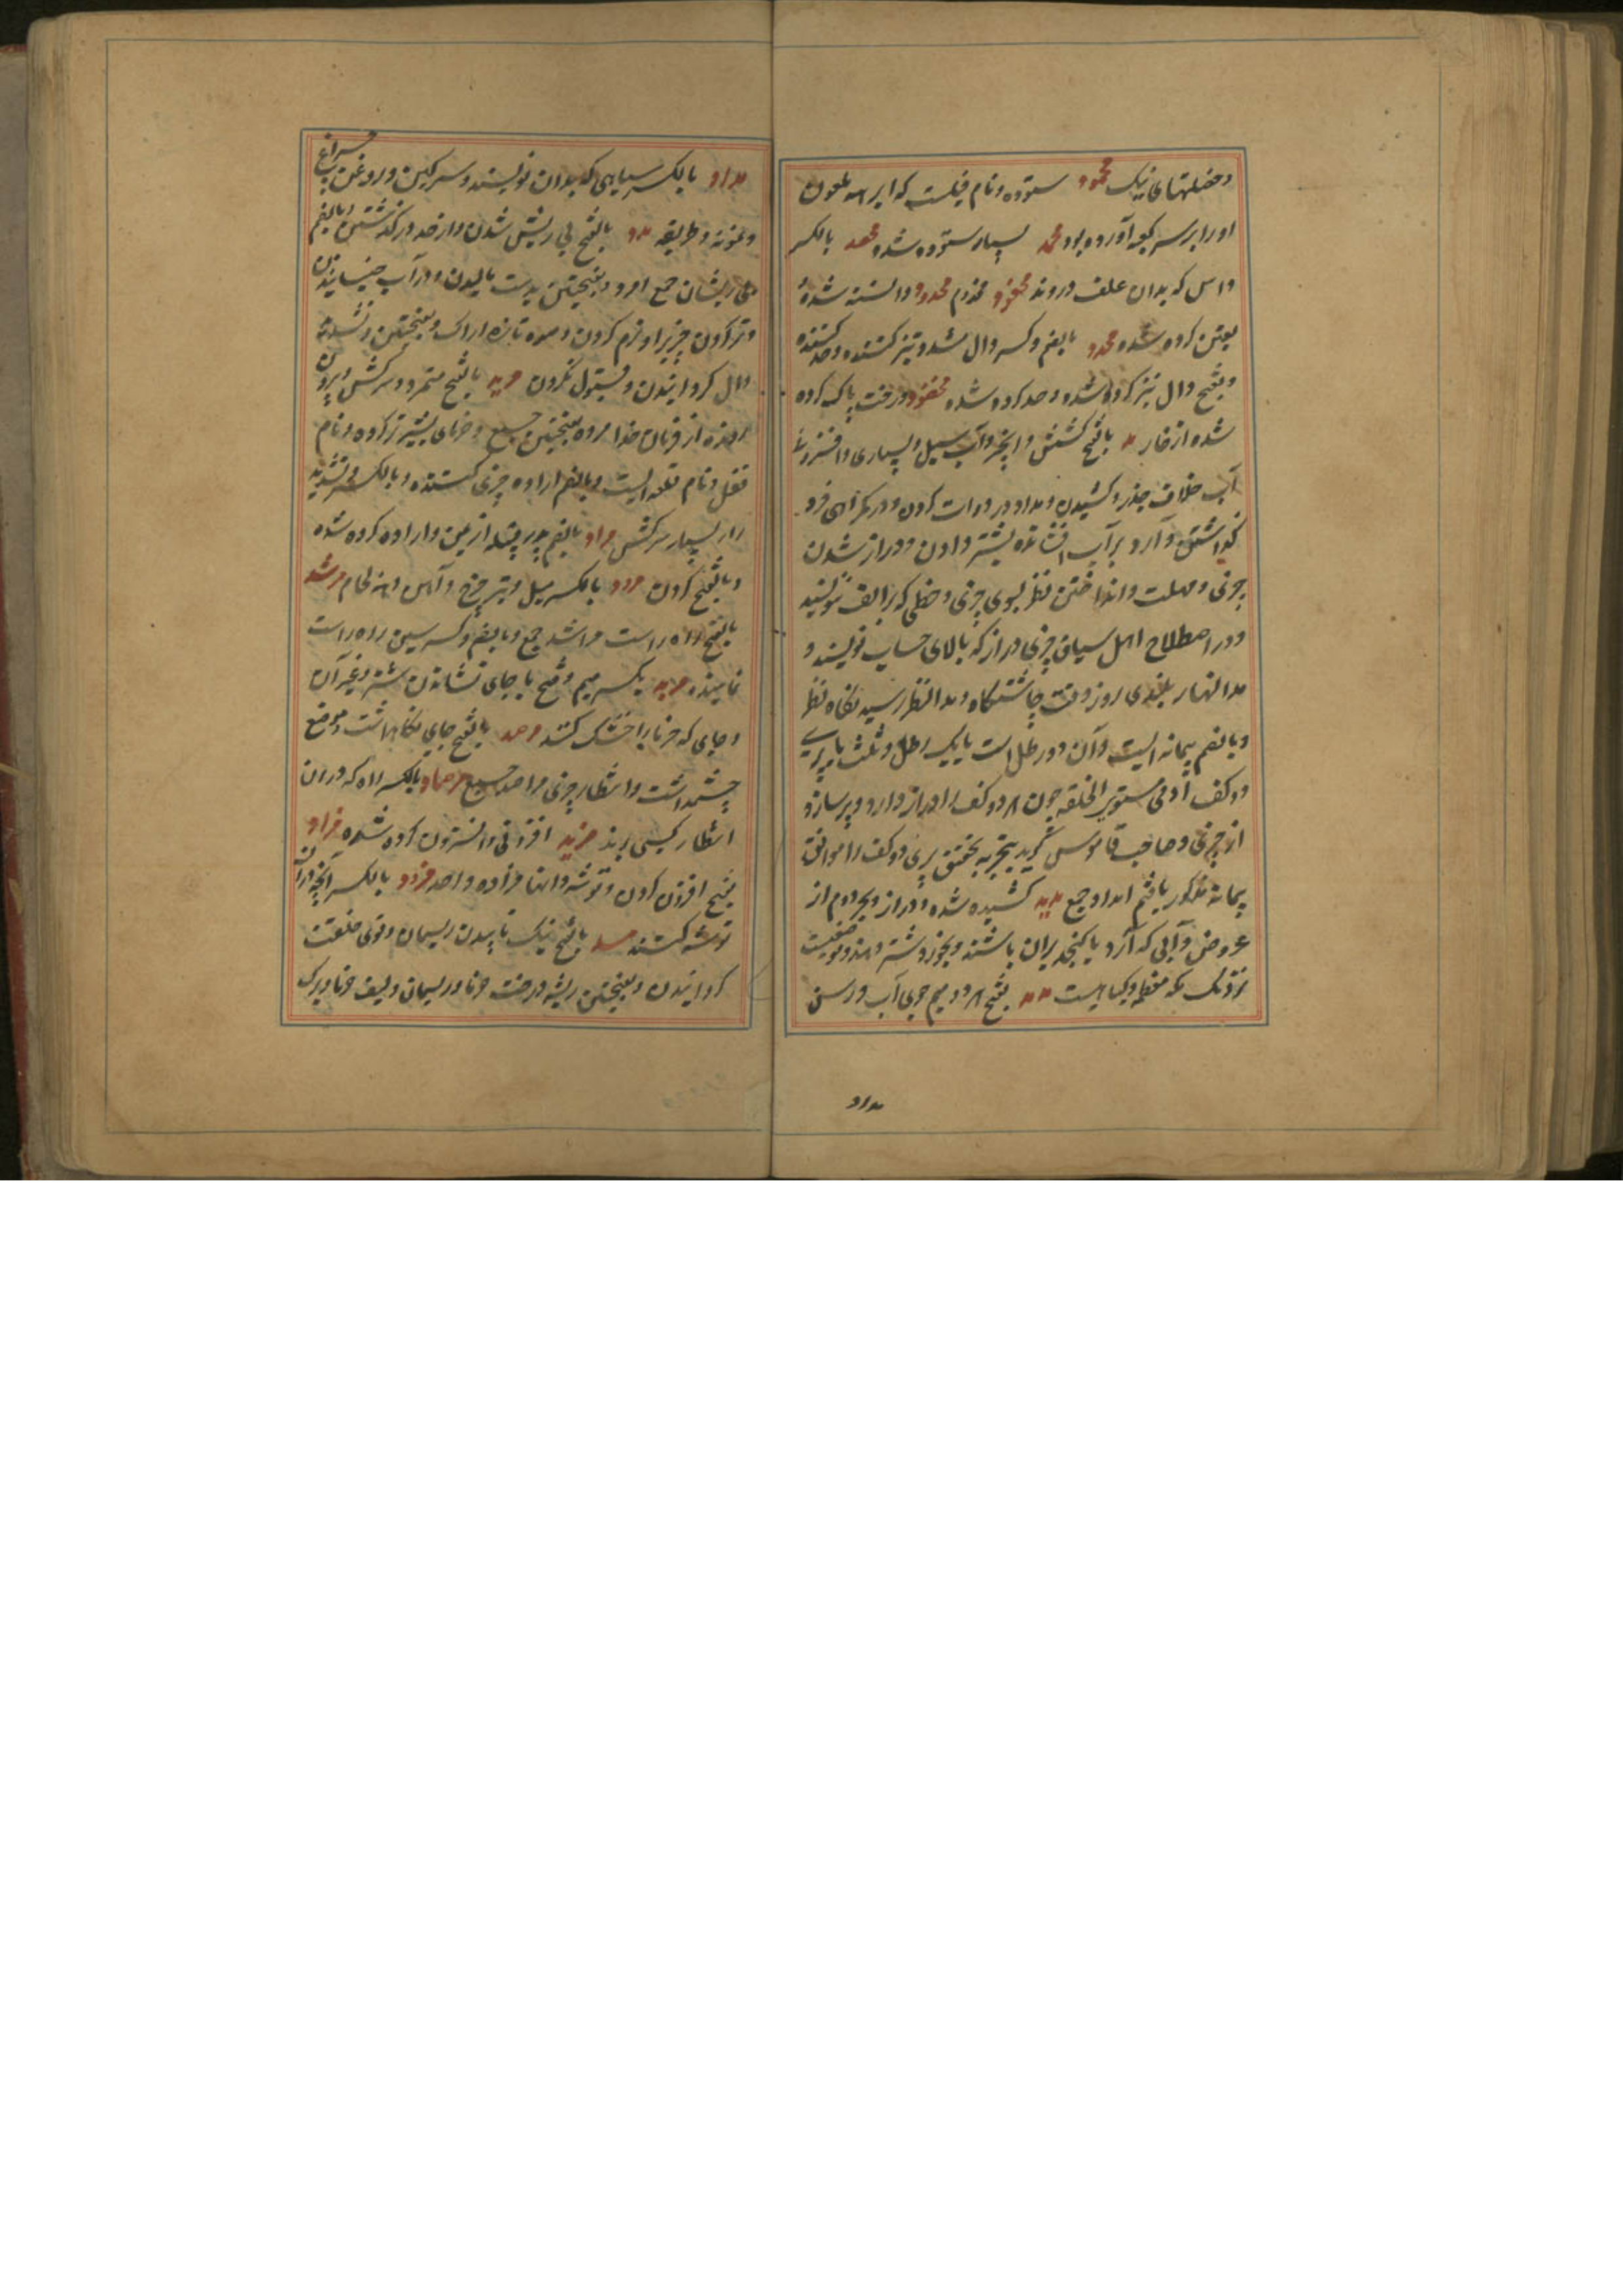 وخصلتهای نیک محمود ستوده ونام فیلست که ابرهه ملعون
اورا برسر کعبه آورده بود محمد بسیار ستوده شده محصد بالکسر
داس که بدان علف دروند مخدوم محدود دانسته شده
یقین کرده شده محدد بالضم وکسر دال تند وتیز کننده وحد کننده
وبفتح دال تیز کرده شده وحد کرده شده مخضود درخت پاک کرده
شده از خار مد بالفتح کشش وآب سیل وبسیاری وافزونی
آب خلاف جزر وکشیدن ومداد در دوات کردن ودر گمراهی فرو
گذاشتن وآرد بر آب افشانده بشتر دادن ودراز شدن
چیزی ومهلت وانداختن نظر بسوی چیزی وخطی که بر الف نویسند
ودر اصطلاح اهل سیاق چیزی دراز که بالای حساب نویسند و
مدالنهار بلندی روز وقت چاشتگاه ومدالنظر رسیدنگاه نظر
وبالضم پیمانه ایست وآن دو رطل است یا یک رطل وثلث یا پری
دو کف آدمی مستوی الخلقه چون هر دو کف را دراز دارد وپر سازد
از چیزی وصاحب قاموس گوید بتجربه تحقیق پری دو کف را موافق
پیمانه مذکور یافتم امداد جمع مدید کشیده شده ودراز وبحر دوم از
عروض وآبی که آرد یا کنجد بران باشند وبخورد شتر دهند وموضعیست
نزدیک مکه معظمه وگیاهیست مدد بفتح هر دو میم جوی آب ورسن
مداد
مداد بالکسر سیاهی که بدان نویسند وسرگین وروغن چراغ
ونمونه وطریقه مرد بالفتح بی ریش شدن واز حد درگذشتن وبالضم
بی ریشان جمع امرد وبفتحتین بدست مالیدن ودر آب خیسانیدن
وتر کردن چیزی را ونرم کردن ومیوه تازه اراک
مرید بالفتح متمرد وسرکش وبیرون
رونده از فرمان خدا مرده بفتحتین جمع وخرمای بشیر تر کرده ونام
نقل ونام قلعه ایست وبالضم اراده چیزی کننده وبالکسر وتشدید
را بسیار سرکش مراد بالضم پدر قبیله از یمن واراده کرده شده
وبالفتح گردن مرود بالکسر میل وتیر چرخ وآهن دهنه لجام مرشد
بالفتح راه راست مراشد جمع وبالضم وکسر سین راه راست
نماینده مربد بکسر میم وفتح با جای نشاندن شتر وغیر آن
وجای که خرما را خشک کنند مرصد بالفتح جای نگاهداشت وموضع
چشمداشت وانتظار چیزی مراصد جمع مرصاد بالکسر راه که در ان
انتظار کسی برند مزید افزونی وافزون کرده شده مزاد
بفتح افزون کردن وتوشه دانها مزاده واحد مزود بالکسر آنچه در آن
توشه کنند مسد بالفتح نیک تابیدن ریسمان وقوی خلقت
گردانیدن وبفتحتین ریشه درخت خرما وریسمان ولیف خرما وبرگ